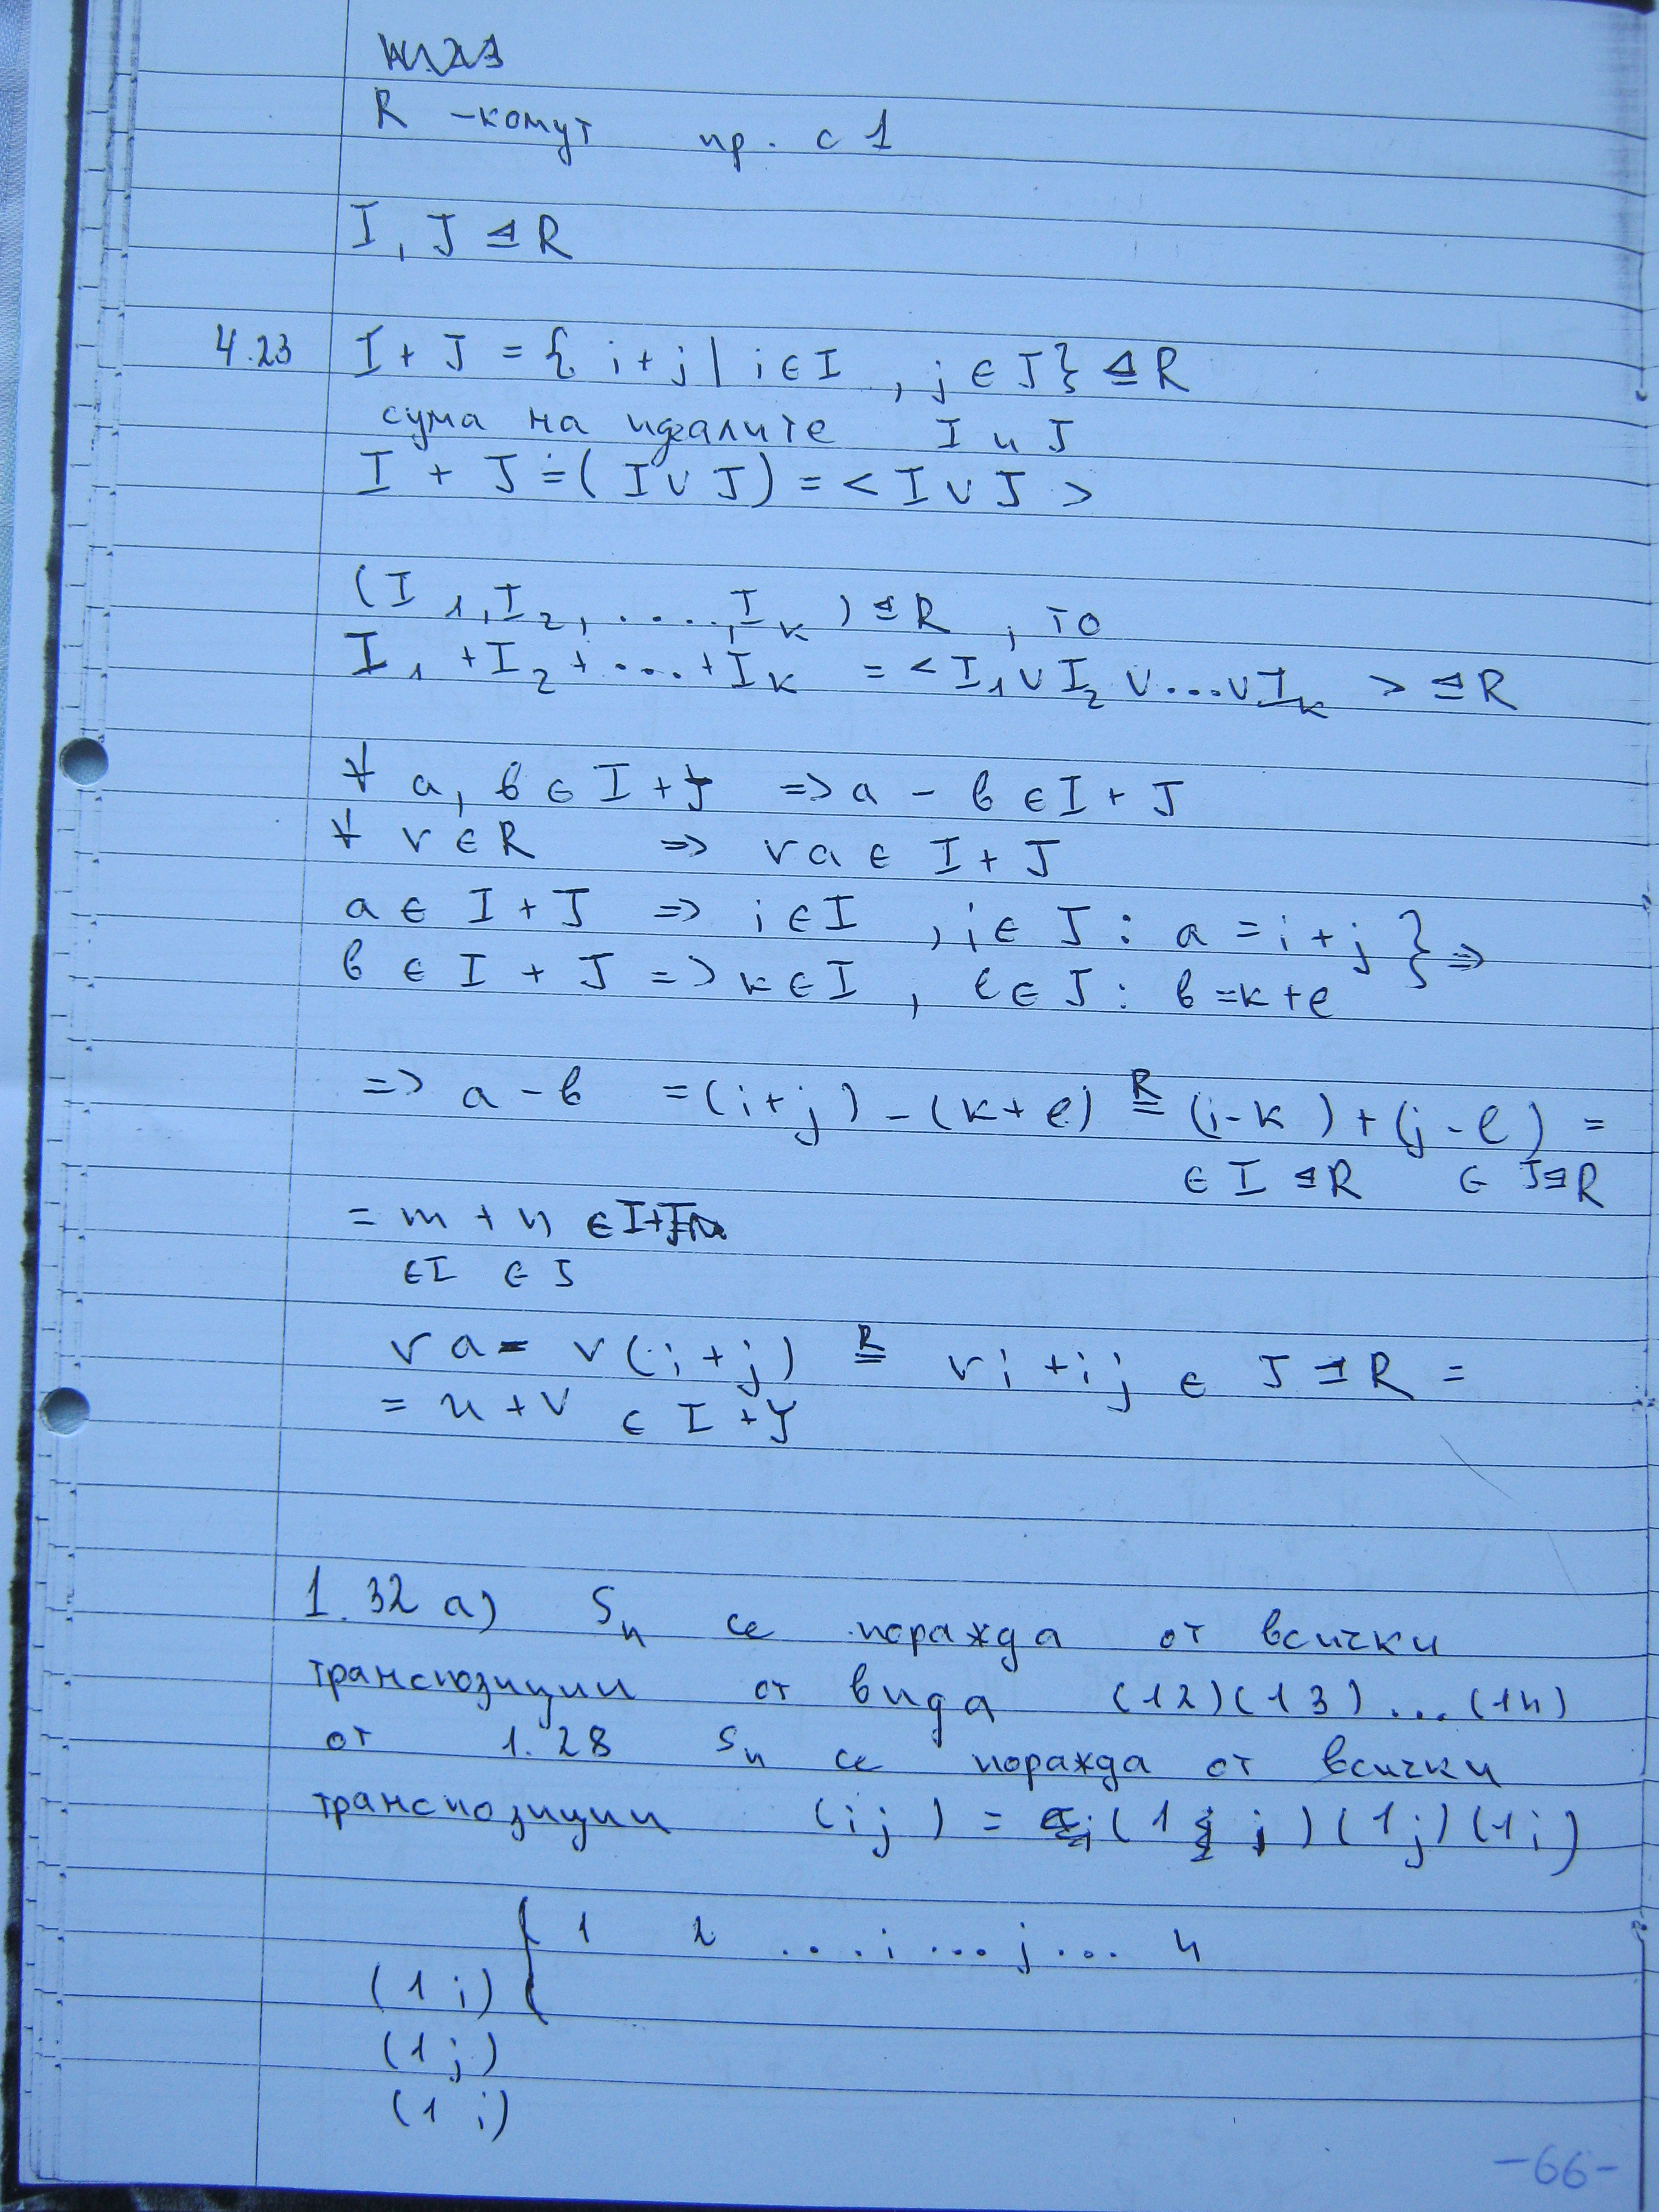 R - комут пр. с 1
I, J ⊴ R
4.23 I + J = { i + j | i ∈ I , j ∈ J } ⊴ R
сума на идеалите I и J
I + J = ( I ∪ J ) = < I ∪ J >
( I₁, I₂, ....., Iₖ ) ⊴ R , то
I₁ + I₂ + ... + Iₖ = < I₁ ∪ I₂ ∪ ... ∪ Iₖ > ⊴ R
∀ a, в ∈ I + J => a - в ∈ I + J
∀ r ∈ R => ra ∈ I + J
a ∈ I + J => i ∈ I , j ∈ J : a = i + j } =>
в ∈ I + J => к ∈ I , l ∈ J : в = к + l
=> a - в = (i + j) - (к + l) =ᴿ (i - к) + (j - l) =
∈ I ⊴ R ∈ J ⊴ R
= m + n ∈ I + J
∈ I ∈ J
ra = r (i + j) =ᴿ ri + ij ∈ J ⊴ R =
= u + v ∈ I + J
1.32 а) Sₙ се поражда от всички
транспозиции от вида (12)(13)...(1n)
от 1.28 Sₙ се поражда от всички
транспозиции (ij) = (1 j) (1j) (1i)
( 1 2 ....i...j... n
(1 i)
(1 j)
(1 i)
-66-